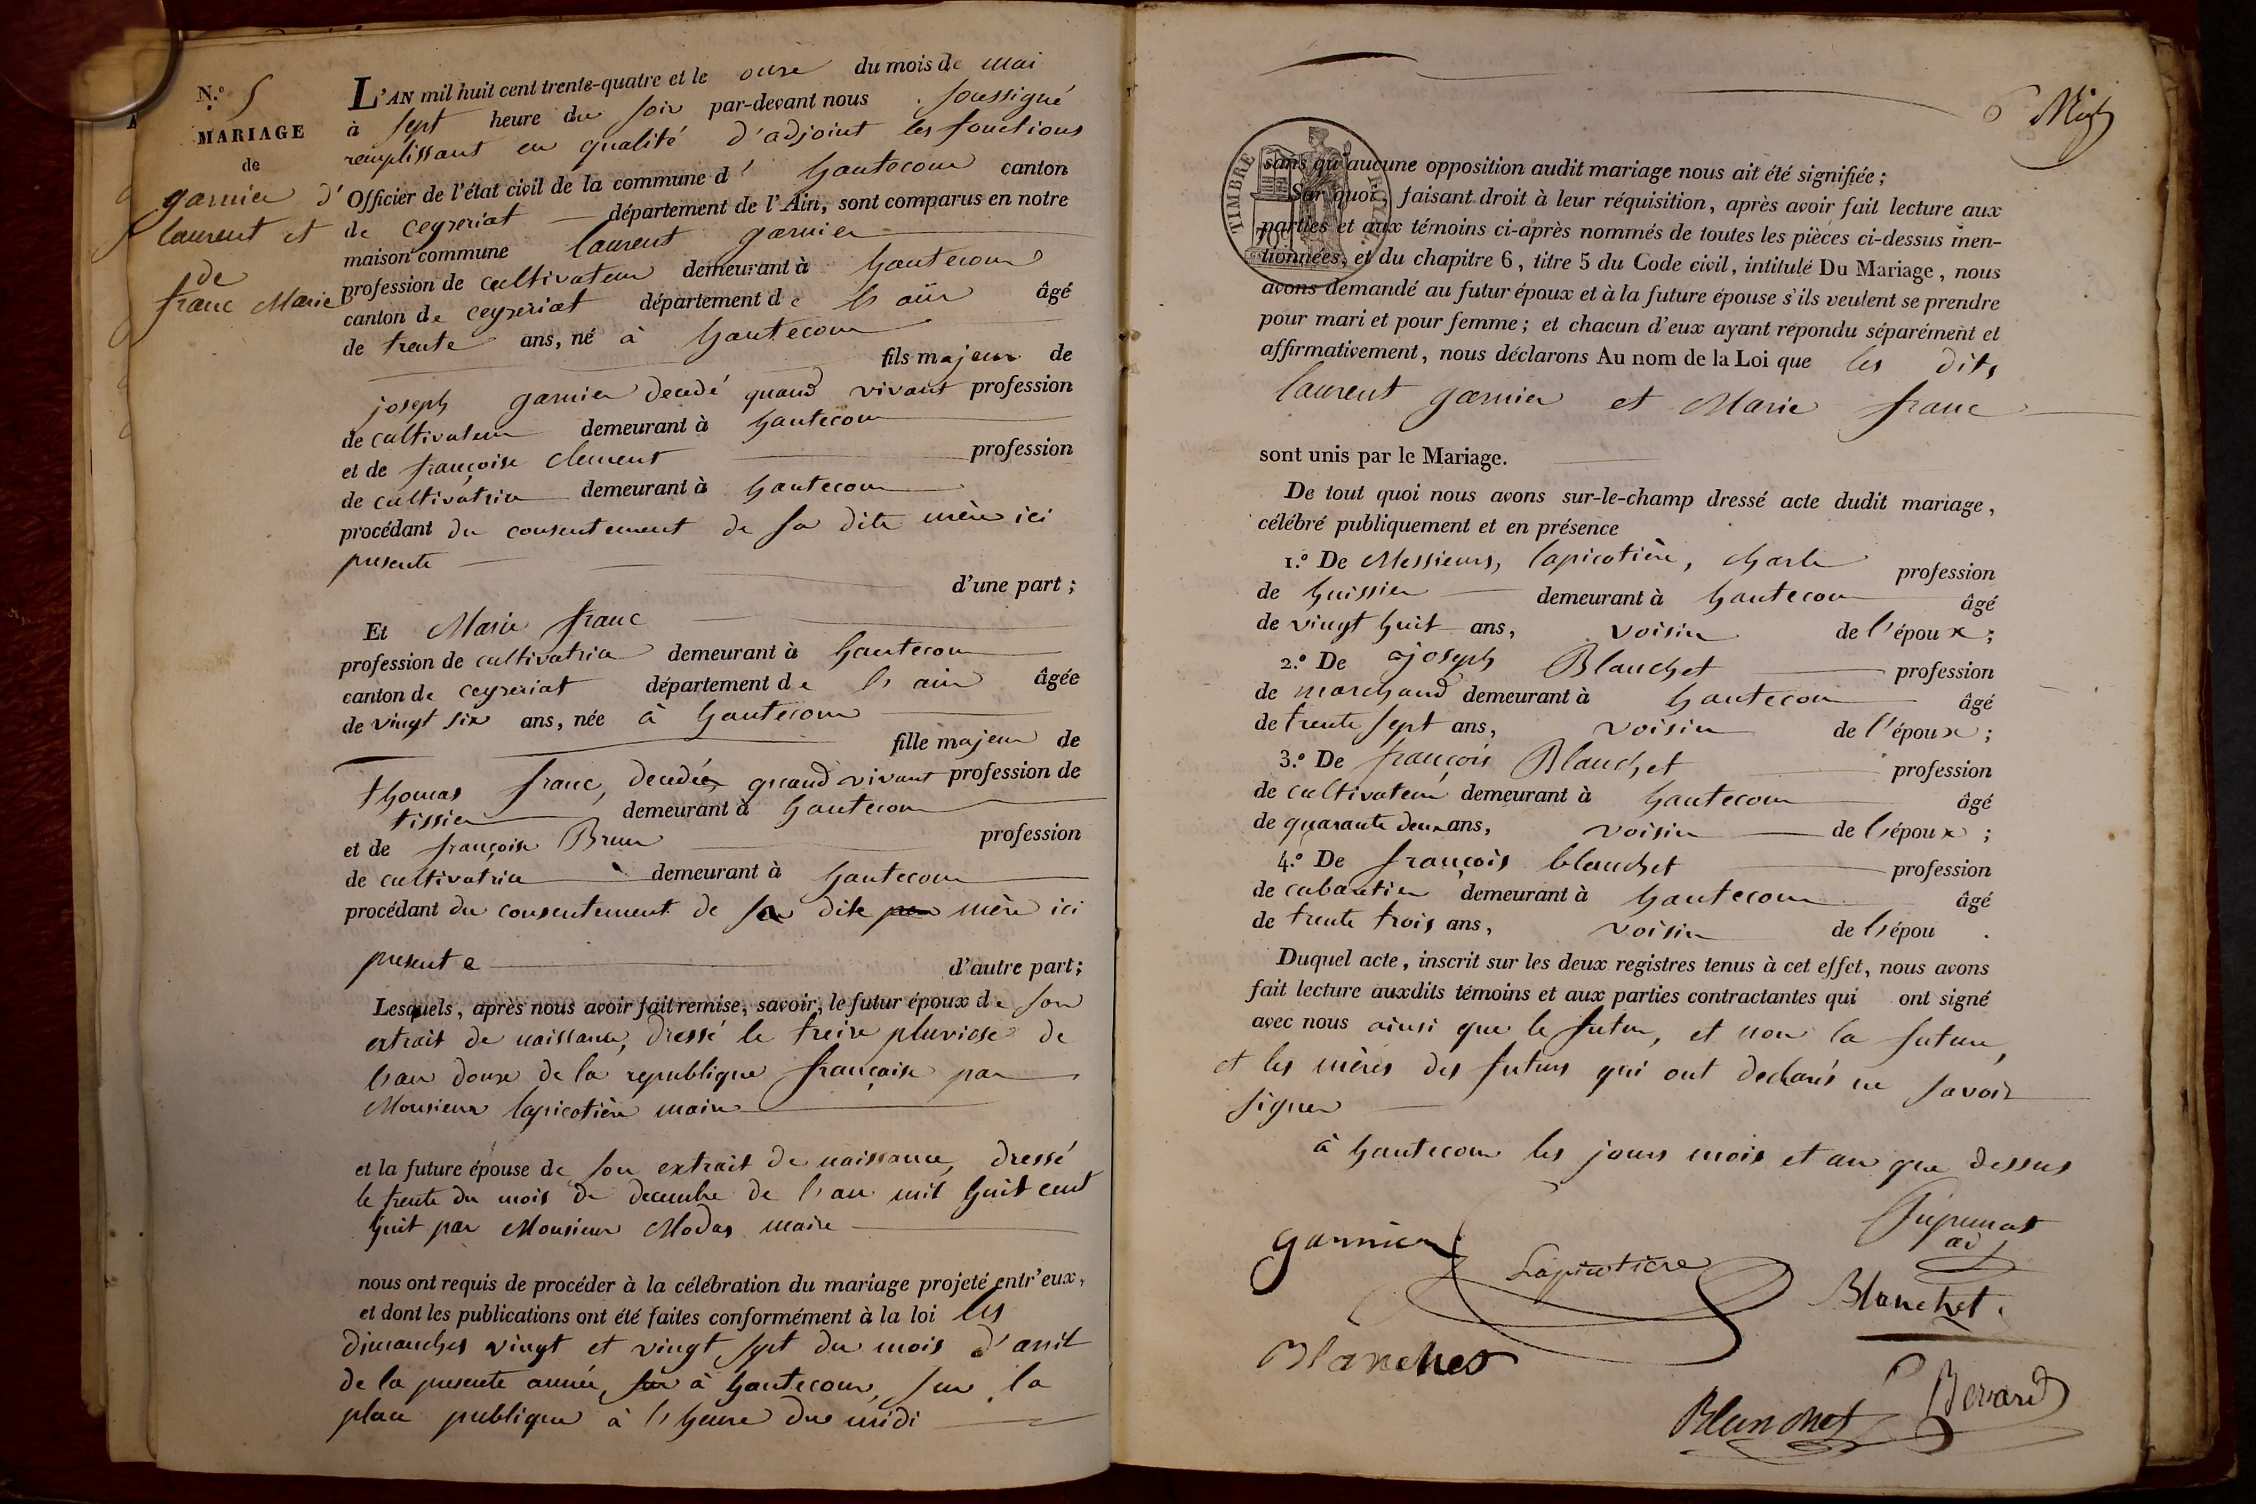 N.o 5
MARIAGE
de
garnier
laurent et
de
franc Marie
L'AN mil huit cent trente-quatre et le onze du mois de mai
à sept heure du soir par-devant nous soussigné
remplissant en qualité d'adjoint les fonctions
d'Officier de l'état civil de la commune d' hautecour canton
de ceyzeriat département de l'Ain, sont comparus en notre
maison commune laurent garnier
profession de cultivateur demeurant à hautecour
canton de ceyzeriat département de l'ain âgé
de trente ans, né à hautecour
fils majeur de
joseph garnier decedé quand vivant profession
de cultivateur demeurant à hautecour
et de françoise clement profession
de cultivatrice demeurant à hautecour
procédant du consentement de sa dite mère ici
presente
d'une part ;
Et Marie franc
profession de cultivatrice demeurant à hautecour
canton de ceyzeriat département de l'ain âgée
de vingt six ans, née à hautecour
fille majeur de
thomas franc, decedée quand vivant profession de
tissier demeurant à hautecour
et de françoise Brun profession
de cultivatrice demeurant à hautecour
procédant du consentement de sa dite mère ici
presente
d'autre part ;
Lesquels, après nous avoir fait remise, savoir, le futur époux de son
extrait de naissance, dressé le treize pluviose de
l'an douze de la republique française par
Monsieur lapicotière maire
et la future épouse de son extrait de naissance, dressé
le trente du mois de decembre de l'an mil huit cent
huit par Monsieur Modas maire
nous ont requis de procéder à la célébration du mariage projeté entr'eux,
et dont les publications ont été faites conformément à la loi les
dimanches vingt et vingt sept du mois d'avril
de la presente année, à hautecour, sur la
place publique à l'heure du midi
6
TIMBRE ROYAL
70 c
sans qu'aucune opposition audit mariage nous ait été signifiée ;
Sur quoi, faisant droit à leur réquisition, après avoir fait lecture aux
parties et aux témoins ci-après nommés de toutes les pièces ci-dessus men-
tionnées, et du chapitre 6, titre 5 du Code civil, intitulé Du Mariage, nous
avons demandé au futur époux et à la future épouse s'ils veulent se prendre
pour mari et pour femme ; et chacun d'eux ayant répondu séparément et
affirmativement, nous déclarons Au nom de la Loi que les dits
laurent garnier et Marie franc
sont unis par le Mariage.
De tout quoi nous avons sur-le-champ dressé acte dudit mariage,
célébré publiquement et en présence
1.o De Messieurs, lapicotière, charle profession
de huissier demeurant à hautecour âgé
de vingt huit ans, voisin de l'époux ;
2.o De joseph Blanchet profession
de marchand demeurant à hautecour âgé
de trente sept ans, voisin de l'époux ;
3.o De françois Blanchet profession
de cultivateur demeurant à hautecour âgé
de quarante deux ans, voisin de l'époux ;
4.o De françois blanchet profession
de cabaretier demeurant à hautecour âgé
de trente trois ans, voisin de l'épou .
Duquel acte, inscrit sur les deux registres tenus à cet effet, nous avons
fait lecture auxdits témoins et aux parties contractantes qui ont signé
avec nous ainsi que le futur, et non la future,
et les mères des futurs qui ont declarés ne savoir
signer
à hautecour les jours mois et an que dessus
garnier
Lapicotiere
Blanchet
Blanchet
Blanchet
Bevard